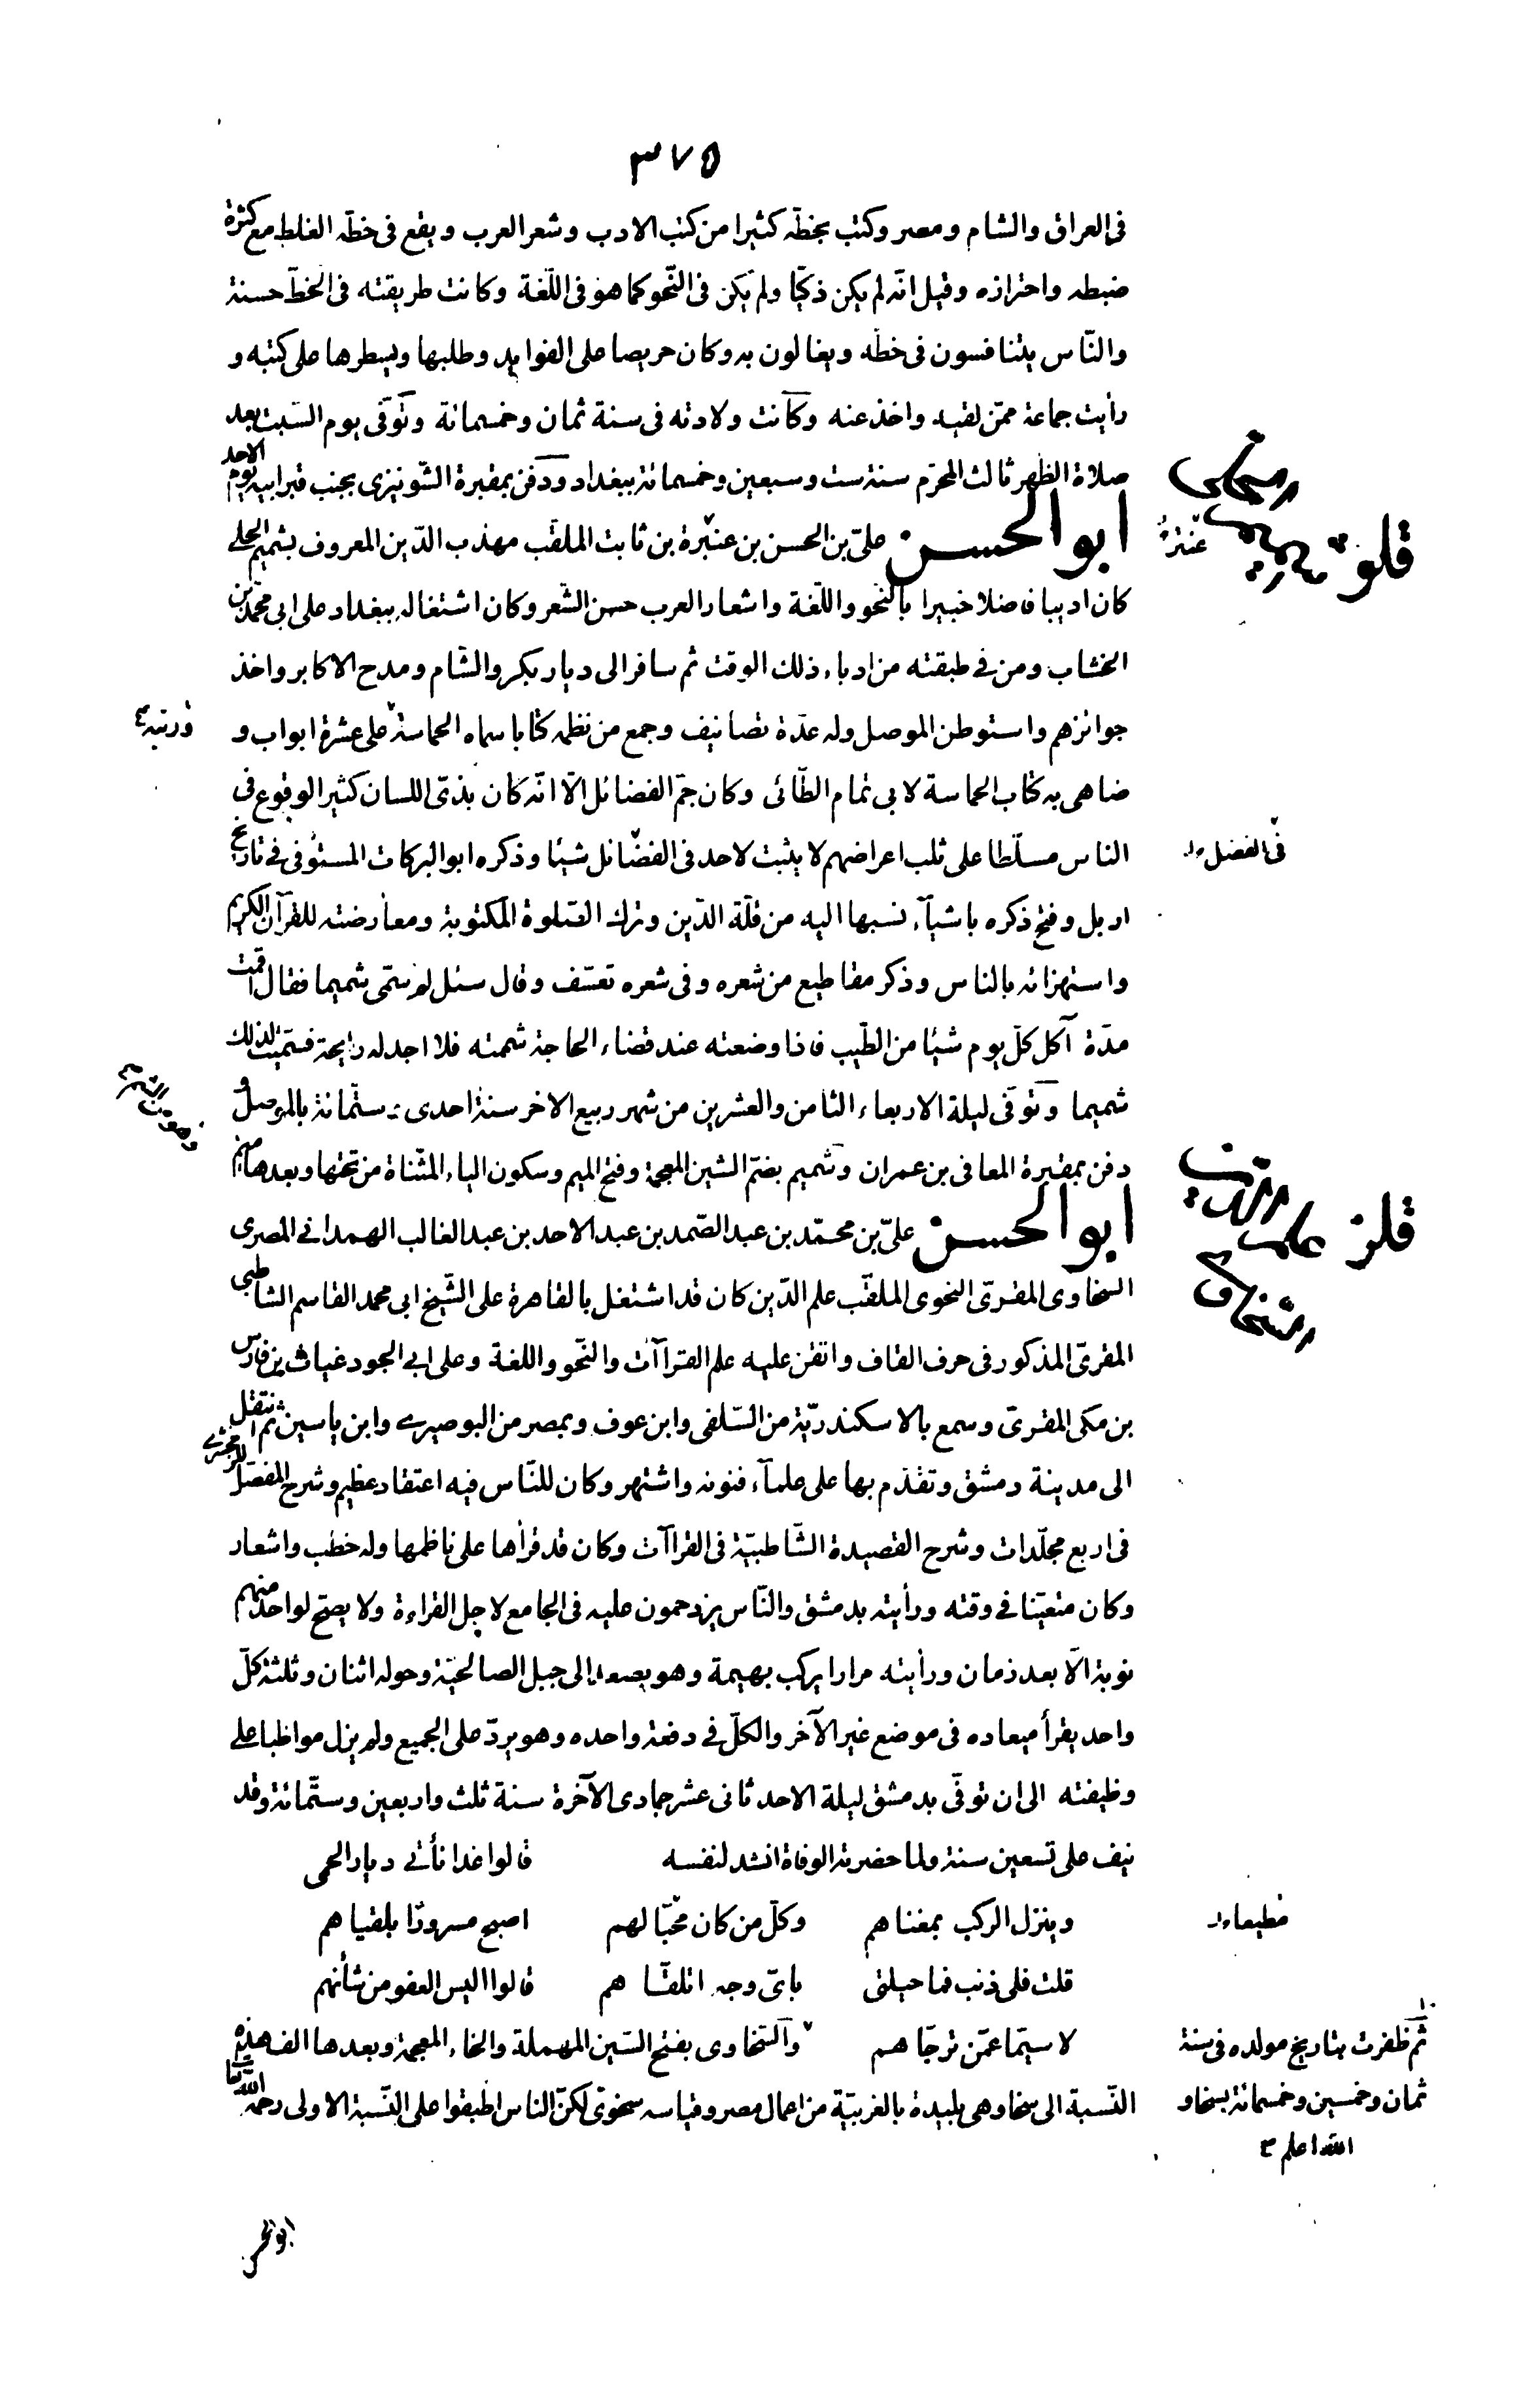 ٣٧٥
فى العراق والشام ومصر وكتب بخطّه كثيرا من كتب الادب وشعر العرب ويقع فى خطّه الغلط مع كثرة
ضبطه واحترازه وقيل انّه لم يكن ذكيّا ولم يكن فى النّحو كما هو فى اللّغة وكانت طريقته فى الخطّ حسنة
والنّاس يتنافسون فى خطّه ويغالون به وكان حريصا على الفوايد وطلبها ويسطرها على كتبه و
رأيت جماعة ممّن لقيه واخذ عنه وكانت ولادته فى سنة ثمان وخمسمائة وتوفّى يوم السّبت بعد
صلاة الظّهر ثالث المحرّم سنة ست وسبعين وخمسمائة ببغداد ودفن بمقبرة الشّونيزى بجنب قبر ابيه يوم الاحد
ابو الحسن علىّ بن الحسن بن عنبرة بن ثابت الملقّب مهذب الدّين المعروف بشميم الحلى
عنترة
كان اديبا فاضلا خبيرا بالنّحو واللّغة واشعار العرب حسن الشّعر وكان اشتغاله ببغداد على ابى محمّد بن
الخشاب ومن فى طبقته من ادباء ذلك الوقت ثم سافر الى ديار بكر والشّام ومدح الاكابر واخذ
جوائزهم واستوطن الموصل وله عدّة تصانيف وجمع من نظمه كتابا سماه الحماسة على عشرة ابواب و
ورتبه
ضاهى به كتاب الحماسة لابى تمام الطّائى وكان جمّ الفضائل الّا انّه كان بذىّ اللسان كثير الوقوع فى
الناس مسلّطا على ثلب اعراضهم لا يثبت لاحد فى الفضائل شيئا وذكره ابو البركات المستوفى فى تاريخ
فى الفضل
اربل وفتح ذكره باشيآء نسبها اليه من قلّة الدّين وترك الصّلوة المكتوبة ومعارضته للقرآن الكريم
واستهزائه بالناس وذكر مقاطيع من شعره وفى شعره تعسّف وقال سئل لم سمّى شميما فقال اقمت
مدّة آكل كلّ يوم شيئا من الطّيب فاذا وضعته عند قضاء الحاجة شممته فلا اجد له رايحة فسمّيت لذلك
شميما وتوفّى ليلة الاربعاء الثامن والعشرين من شهر ربيع الاخر سنة احدى وستّمائة بالموصل و
دفن بمقبرة المعافى بن عمران وشميم بضمّ الشين المعجمة وفتح الميم وسكون الياء المثّناة من تحتها وبعدها ميم
ابو الحسن علىّ بن محمّد بن عبد الصّمد بن عبد الاحد بن عبد الغالب الهمدانى المصرى
السّخاوى المقرىّ النحوى الملقّب علم الدّين كان قد اشتغل بالقاهرة على الشّيخ ابى محمد القاسم الشاطبى
المقرىّ المذكور فى حرف القاف واتقن عليه علم القرآآت والنّحو واللغة وعلى ابى الجود غياث بن فارس
بن مكى المقرىّ وسمع بالاسكندريّة من السّلفى وابن عوف وبمصر من البوصيرى وابن ياسين ثم انتقل
الى مدينة دمشق وتقدّم بها على علمآء فنونه واشتهر وكان للنّاس فيه اعتقاد عظيم وشرح المفصّل للزمخشرى
فى اربع مجلّدات وشرح القصيدة الشّاطبيّة فى القراآت وكان قد قرأها على ناظمها وله خطب واشعار
وكان متعيّنا فى وقته ورأيته بدمشق والنّاس يزدحمون عليه فى الجامع لاجل القراءة ولا يصحّ لواحد منهم
نوبة الّا بعد زمان ورأيته مرارا يركب بهيمة وهو يصعد الى جبل الصالحيّة وحوله اثنان وثلثة كلّ
واحد يقرأ ميعاده فى موضع غير الآخر والكلّ فى دفعة واحده وهو يردّ على الجميع ولم يزل مواظبا على
وظيفته الى ان توفّى بدمشق ليلة الاحد ثانى عشر جمادى الآخرة سنة ثلث واربعين وستّمائة وقد
نيف على تسعين سنة ولما حضرته الوفاة انشد لنفسه قالوا غدا نأتى ديار الحمى
وينزل الركب بمغناهم وكلّ من كان محبّا لهم اصبح مسرورا بلقياهم
مطيعا
قلت فلى ذنب فما حيلتى باىّ وجه اتلقّاهم قالوا اليس العفو من شأنهم
لا سيّما عمّن ترجّاهم والسّخاوى بفتح السّين المهملة والخاء المعجمة وبعدها الف هذه
النّسبة الى سخا وهى بليدة بالغربيّة من اعمال مصر وقياسه سخوىّ لكنّ الناس اطبقوا على النّسبة الاولى رحمه اللّه تعا
ثم ظفرت بتاريخ مولده فى سنة
ثمان وخمسين وخمسمائة بسخا و
اللّه اعلم
ابو الحسن